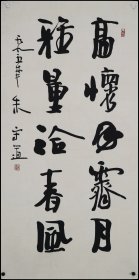 高懷同霽月
雅量洽春風
朱守道